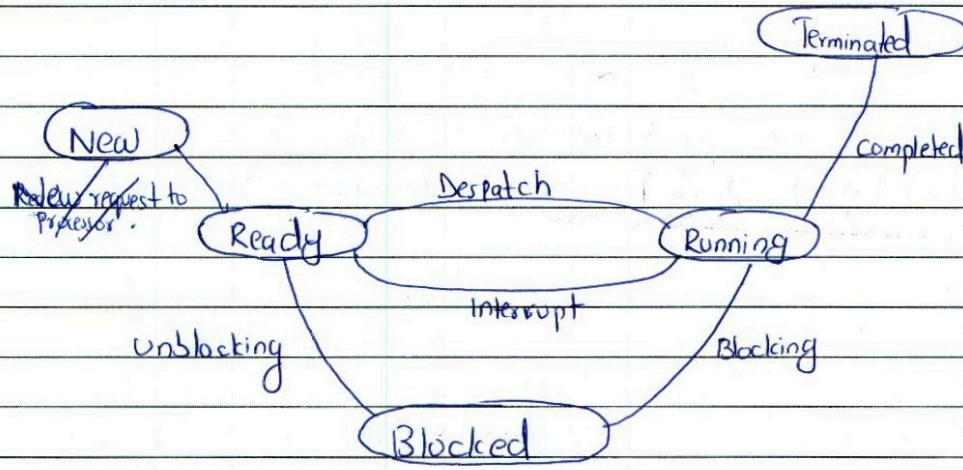 Terminated
New
completed
request to
Processor.
Despatch
Ready
Running
Interrupt
Unblocking
Blocking
Blocked